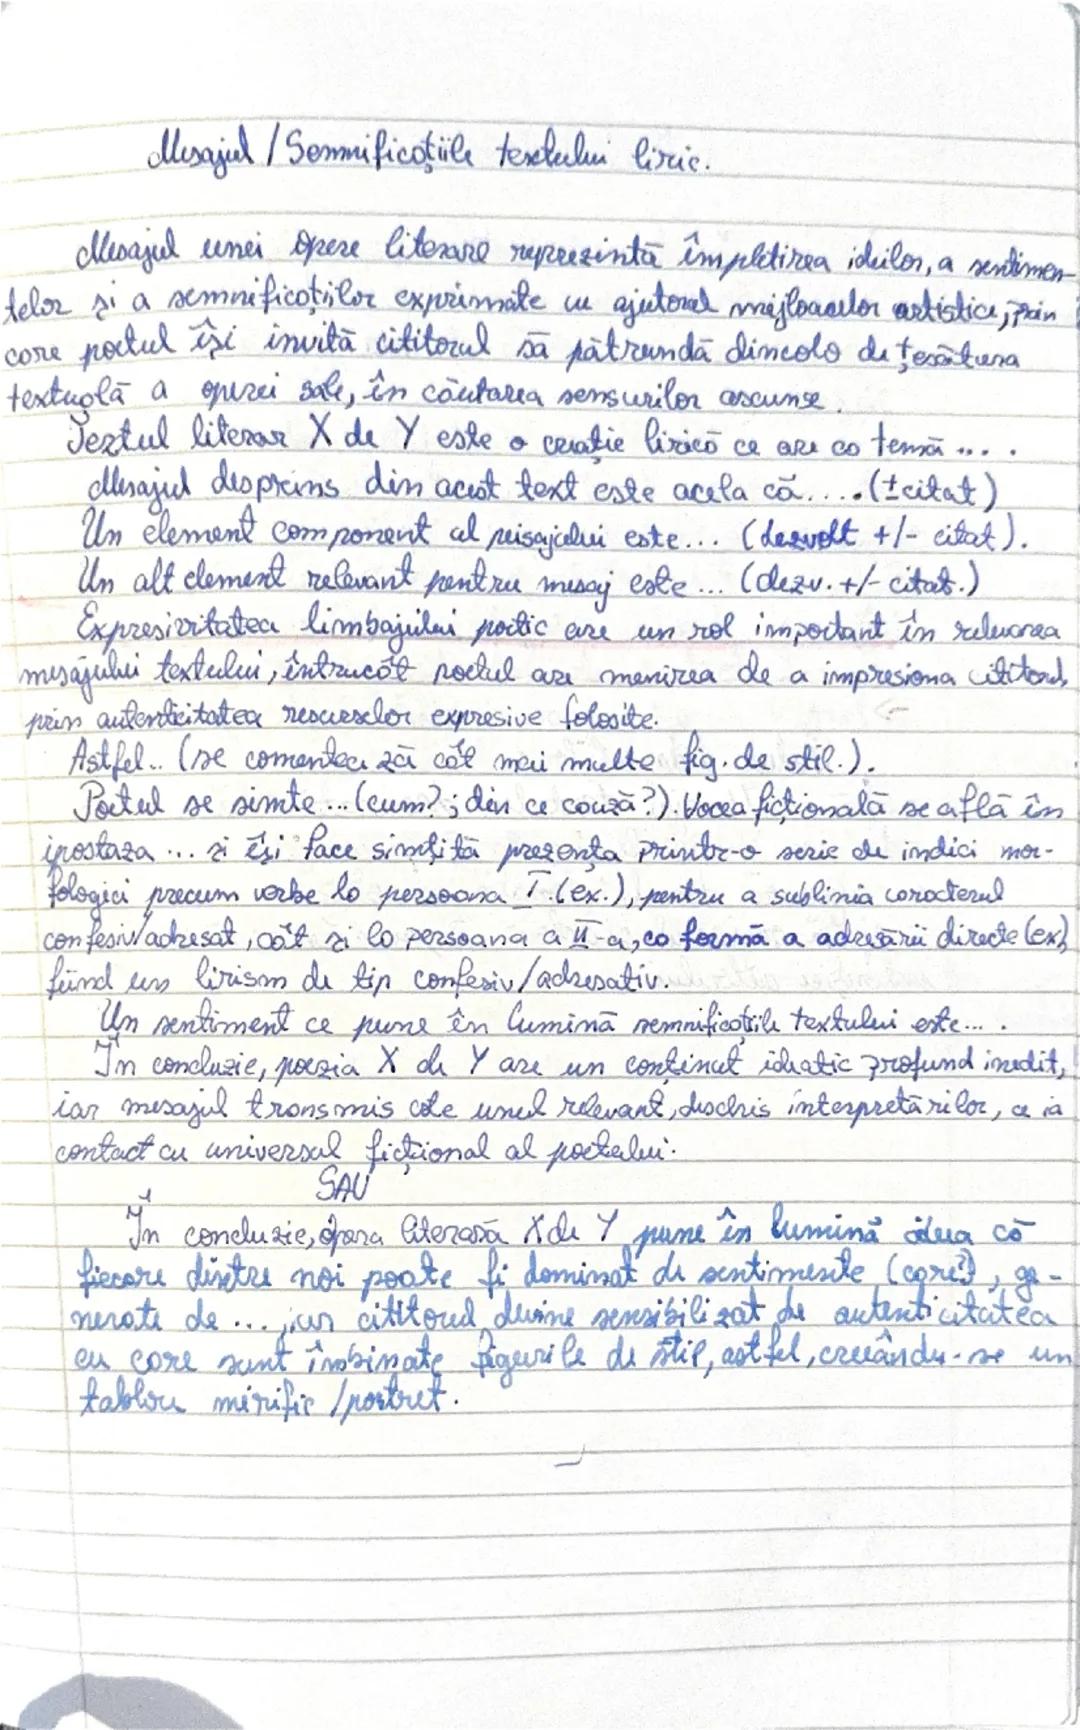 Mesajul / Semnificațiile textului liric.
Mesajul unei opere literare reprezintă împletirea ideilor, a sentimen-
telor și a semnificațiilor exprimate cu ajutorul mijloacelor artistice, prin
care poetul își invită cititorul să pătrundă dincolo de țesătura
textuală a operei sale, în căutarea sensurilor ascunse.
Textul literar X de Y este o creație lirică ce are ca temă ....
Mesajul desprins din acest text este acela că.....(±citat)
Un element component al peisajului este... (dezvolt +/- citat).
Un alt element relevant pentru mesaj este ... (dezv. +/- citat.)
Expresivitatea limbajului poetic are un rol important în relevarea
mesajului textului, întrucât poetul are menirea de a impresiona cititorul,
prin autenticitatea resurselor expresive folosite.
Astfel.. (se comentea ză cât mai multe fig. de stil.).
Poetul se simte ... (cum? ; din ce cauză?). Vocea ficțională se află în
ipostaza ... și își face simțită prezența printr-o serie de indici mor-
fologici precum verbe la persoana I (ex.), pentru a sublinia caracterul
confesiv/adresat, cât și la persoana a II-a, ca formă a adresării directe (ex),
fiind un lirism de tip confesiv/adresativ.
Un sentiment ce pune în lumină semnificațiile textului este... .
În concluzie, poezia X de Y are un conținut ideatic profund inedit,
iar mesajul transmis este unul relevant, deschis interpretărilor, ce ia
contact cu universul ficțional al poetului.
SAU
În concluzie, opera literară X de Y pune în lumină ideea că
fiecare dintre noi poate fi dominat de sentimente (care?), ge-
nerate de ... , iar cititorul devine sensibilizat de autenticitatea
cu care sunt îmbinate figurile de stil, astfel, creându-se un
tablou mirific / portret.